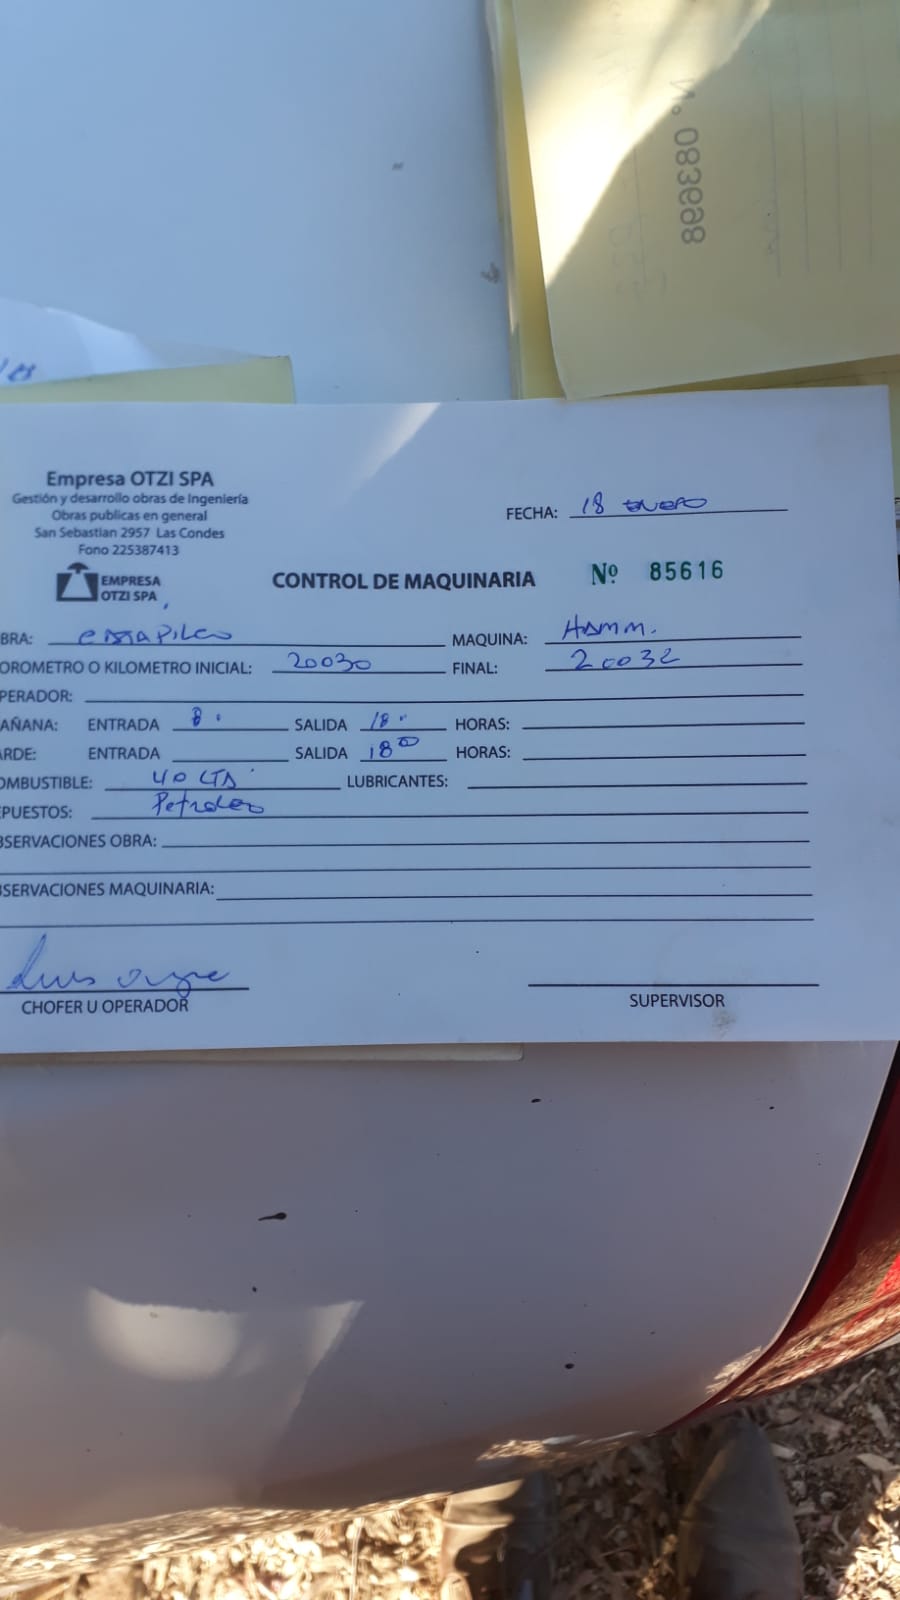 Nº 083698
Empresa OTZI SPA
Gestión y desarrollo obras de Ingeniería
Obras publicas en general
San Sebastian 2957 Las Condes
Fono 225387413
EMPRESA
OTZI SPA
FECHA: 18 enero
CONTROL DE MAQUINARIA Nº 85616
BRA: MAQUINA: HAMM.
OROMETRO O KILOMETRO INICIAL: 20030 FINAL: 20032
PERADOR:
AÑANA: ENTRADA 8. SALIDA 18. HORAS:
ARDE: ENTRADA SALIDA 18 00 HORAS:
OMBUSTIBLE: 40 LTS LUBRICANTES:
PUESTOS: Petroleo
BSERVACIONES OBRA:
BSERVACIONES MAQUINARIA:
Luis
CHOFER U OPERADOR
SUPERVISOR